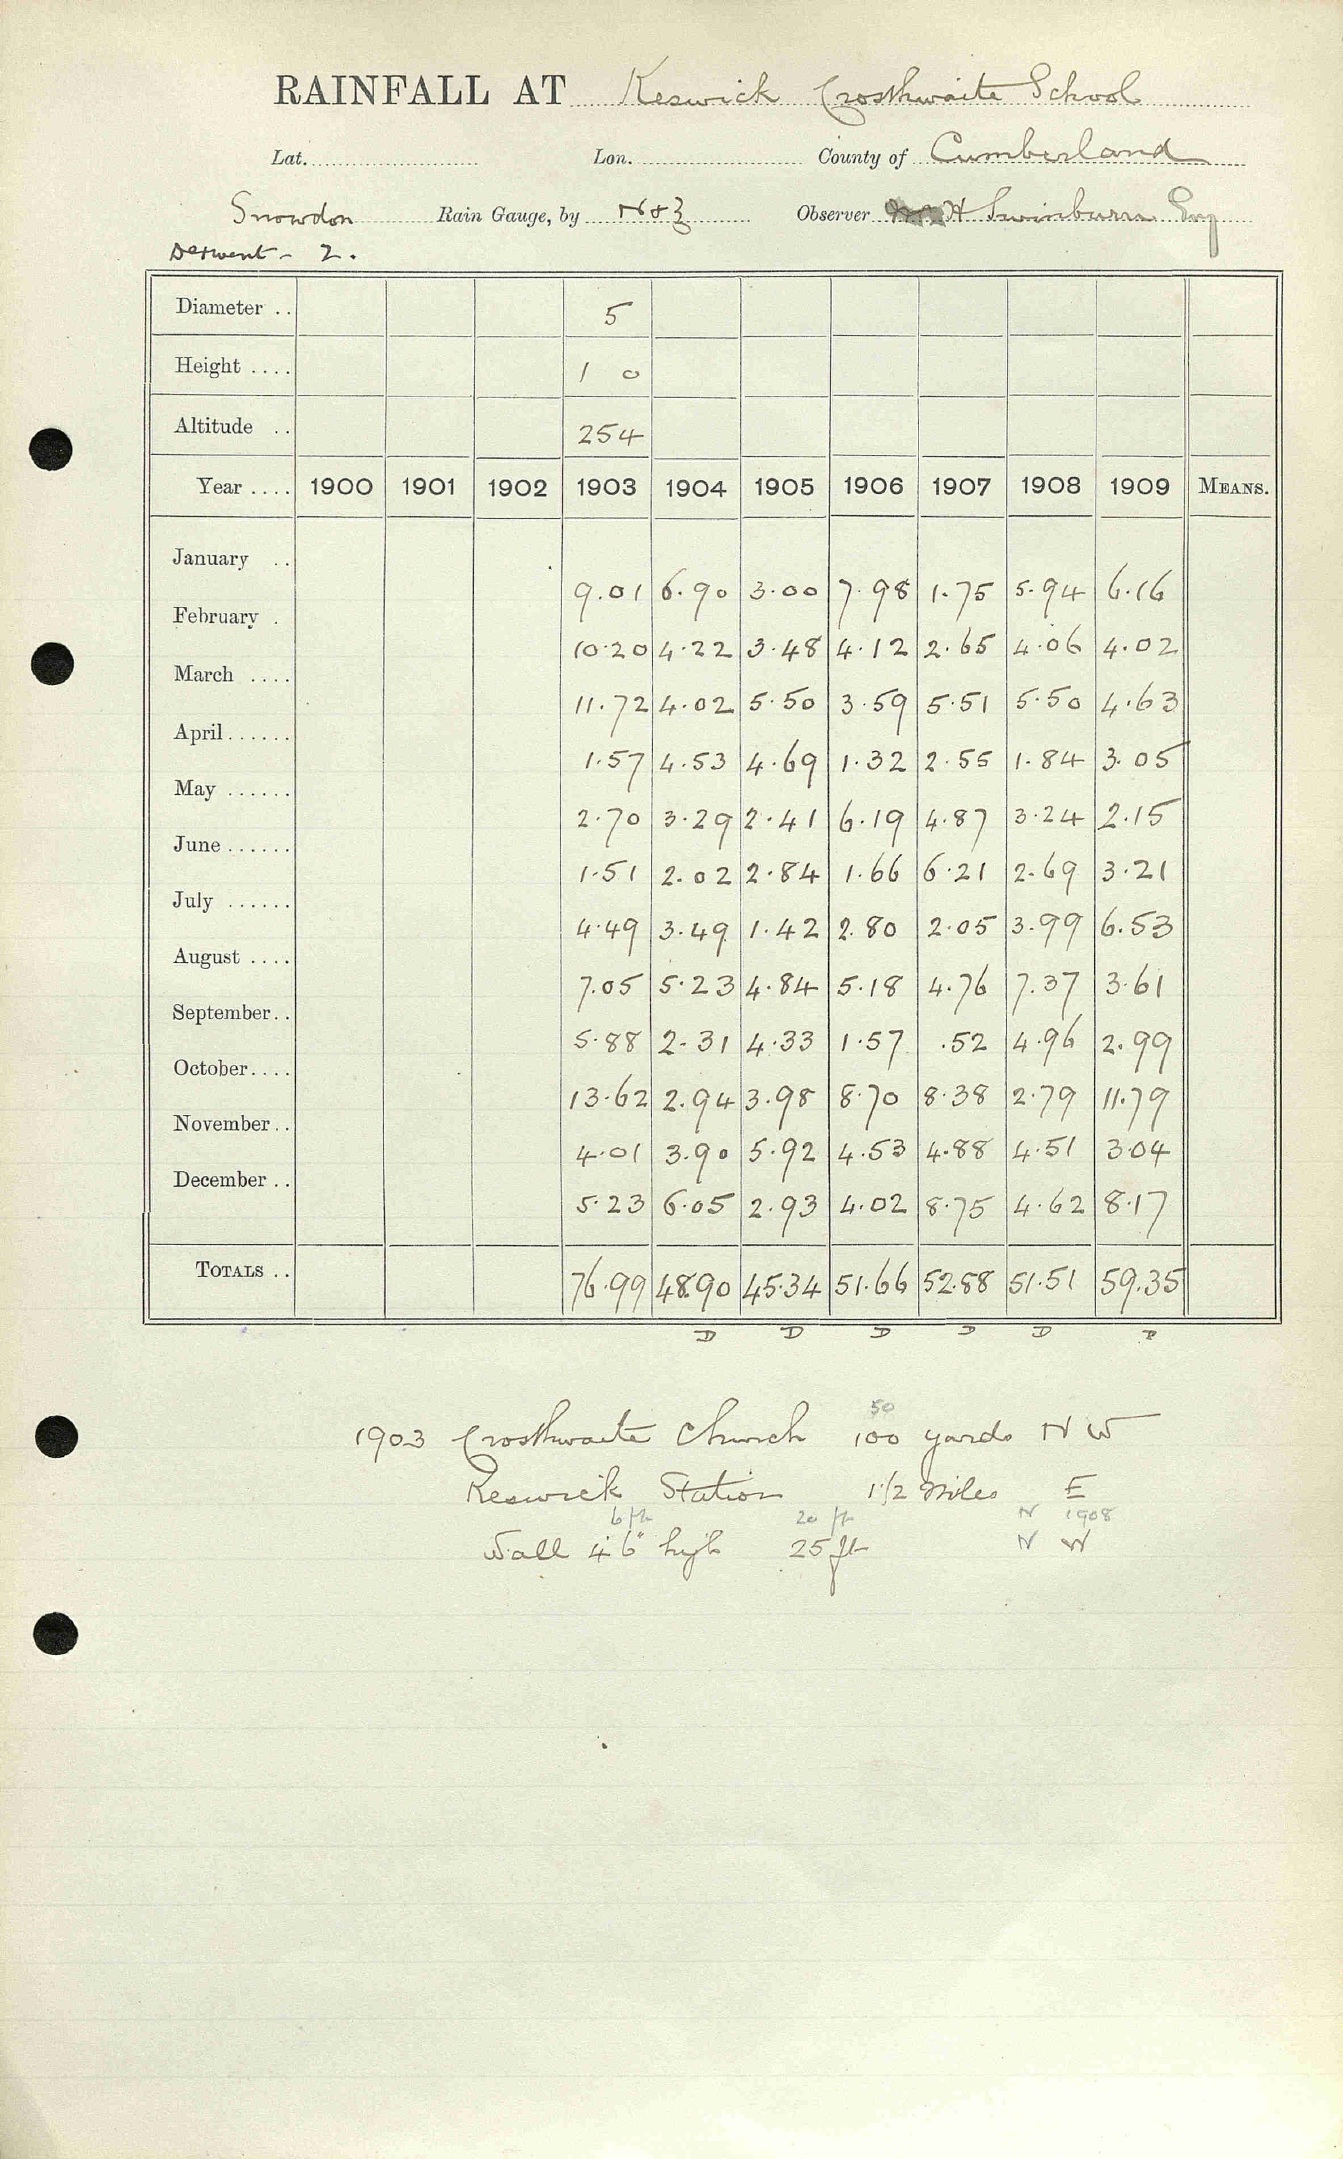 RAINFALL AT Keswick Crosthwaite School
Lat. Lon. County of Cumberland
Snowdon Rain Gauge, by N & Z Observer H Swinburn Esq
Derwent - 2.
Diameter .. 5
Height .... 1 0
Altitude .. 254
Year .... 1900 1901 1902 1903 1904 1905 1906 1907 1908 1909 MEANS.
January .. 9.01 6.90 3.00 7.98 1.75 5.94 6.16
February . 10.20 4.22 3.48 4.12 2.65 4.06 4.02
March .... 11.72 4.02 5.50 3.59 5.51 5.50 4.63
April...... 1.57 4.53 4.69 1.32 2.55 1.84 3.05
May ...... 2.70 3.29 2.41 6.19 4.87 3.24 2.15
June...... 1.51 2.02 2.84 1.66 6.21 2.69 3.21
July ...... 4.49 3.49 1.42 2.80 2.05 3.99 6.53
August .... 7.05 5.23 4.84 5.18 4.76 7.37 3.61
September.. 5.88 2.31 4.33 1.57 .52 4.96 2.99
October.... 13.62 2.94 3.98 8.70 8.38 2.79 11.79
November.. 4.01 3.90 5.92 4.53 4.88 4.51 3.04
December .. 5.23 6.05 2.93 4.02 8.75 4.62 8.17
TOTALS .. 76.99 48.90 45.34 51.66 52.88 51.51 59.35
D D D D D
50
1903 Crosthwaite Church 100 yards N W
Keswick Station 1 1/2 Miles E
6 ft 20 ft N 1908
Wall 4' 6" high 25 ft N W